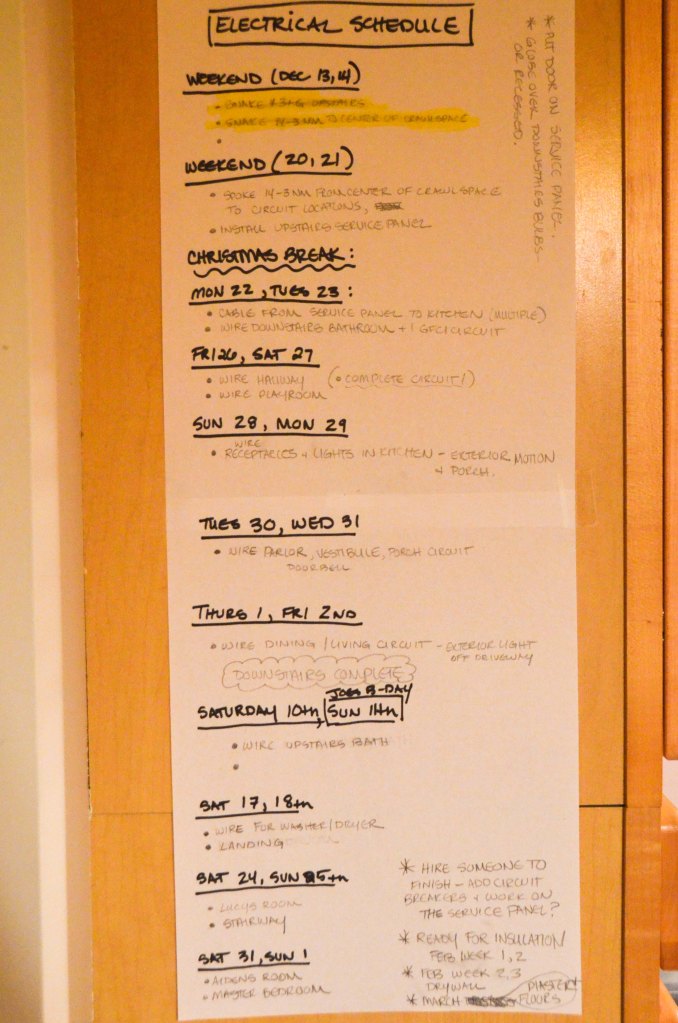 ELECTRICAL SCHEDULE
* PUT DOOR ON SERVICE PANEL.
* GLOBE OVER DOWNSTAIRS BULBS-
OR RECESSED.
WEEKEND (DEC 13,14)
• SNAKE #3+G UPSTAIRS
• SNAKE 14-3 NM TO CENTER OF CRAWLSPACE
•
WEEKEND (20, 21)
• SPOKE 14-3 NM FROM CENTER OF CRAWLSPACE
TO CIRCUIT LOCATIONS,
• INSTALL UPSTAIRS SERVICE PANEL
CHRISTMAS BREAK:
MON 22, TUES 23:
• CABLE FROM SERVICE PANEL TO KITCHEN (MULTIPLE)
• WIRE DOWNSTAIRS BATHROOM + 1 GFCI CIRCUIT
FRI 26, SAT 27
• WIRE HALLWAY (• COMPLETE CIRCUIT 1)
• WIRE PLAYROOM
SUN 28, MON 29
WIRE
• RECEPTACLES + LIGHTS IN KITCHEN - EXTERIOR MOTION
+ PORCH.
TUES 30, WED 31
• WIRE PARLOR, VESTIBULE, PORCH CIRCUIT
DOORBELL
THURS 1, FRI 2ND
• WIRE DINING / LIVING CIRCUIT - EXTERIOR LIGHT
OFF DRIVEWAY
DOWNSTAIRS COMPLETE
JOES B-DAY
SATURDAY 10TH, SUN 11TH
• WIRE UPSTAIRS BATH
•
SAT 17, 18TH
• WIRE FOR WASHER/DRYER
• LANDING
SAT 24, SUN 25TH
• LUCYS ROOM
• STAIRWAY
SAT 31, SUN 1
• AIDENS ROOM
• MASTER BEDROOM
* HIRE SOMEONE TO
FINISH - ADD CIRCUIT
BREAKERS + WORK ON
THE SERVICE PANEL?
* READY FOR INSULATION
FEB WEEK 1, 2
* FEB WEEK 2, 3
DRYWALL PLASTER
* MARCH FLOORS